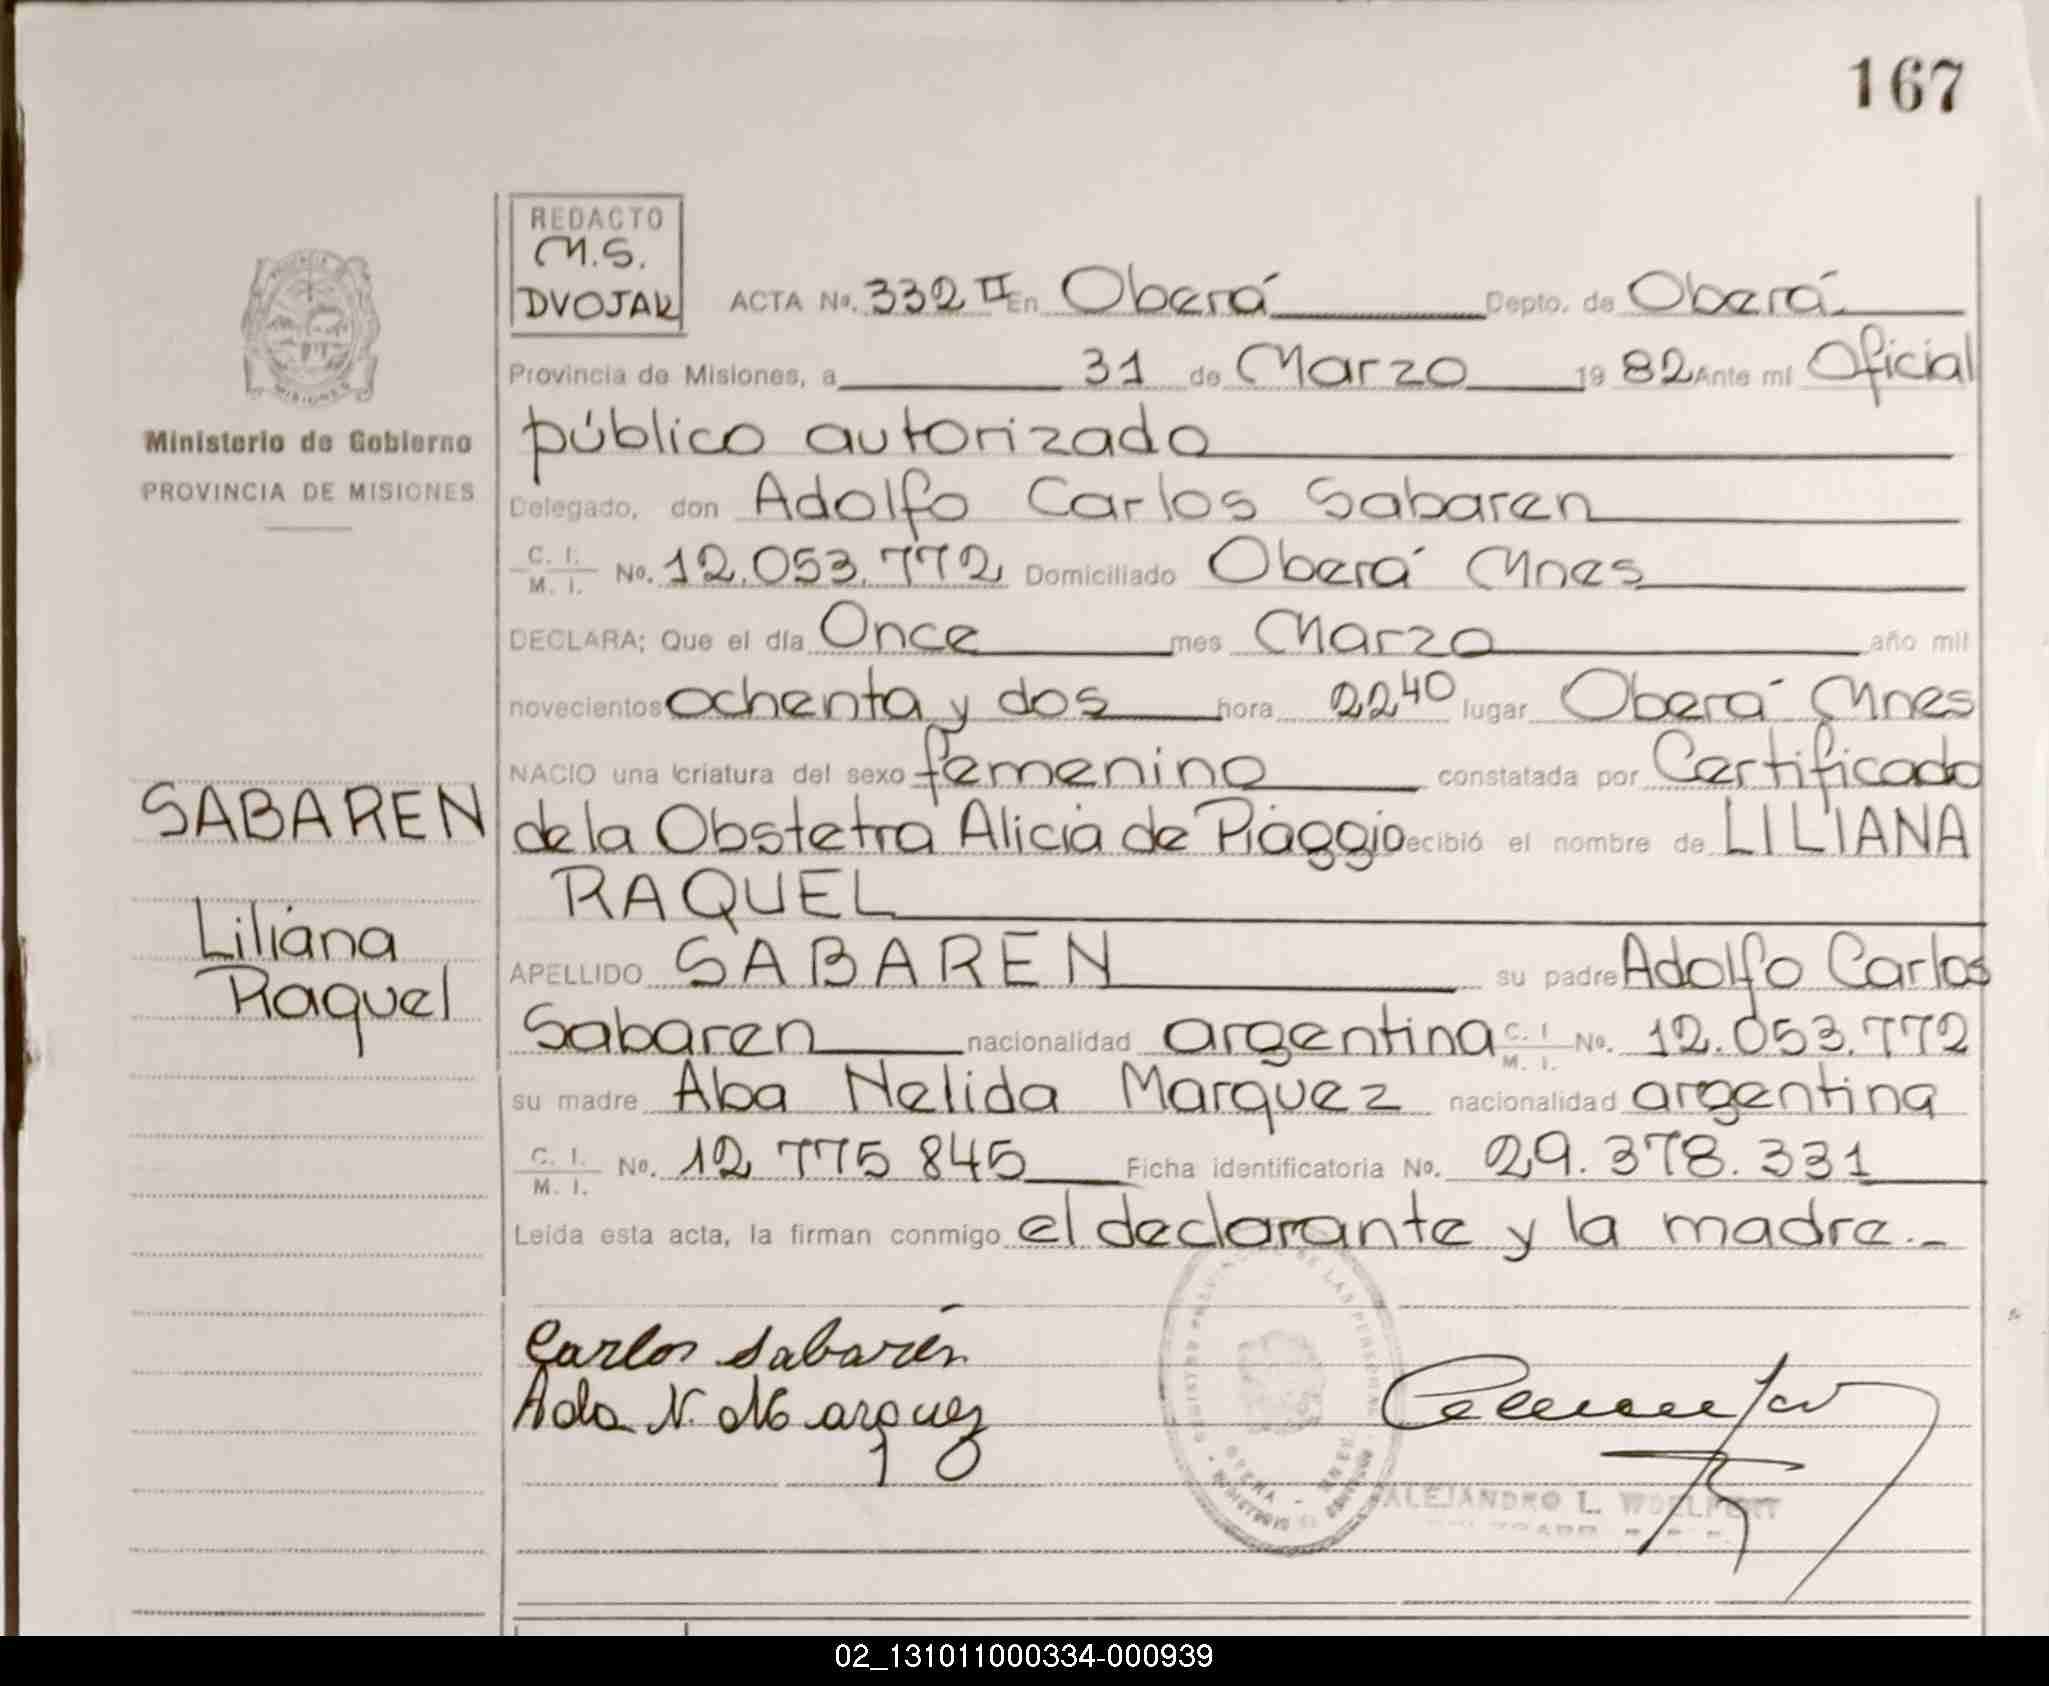 167
REDACTO
M.S.
DVOJAK
ACTA No. 332 II En Oberá Depto. de Oberá
Provincia de Misiones, a 31 de Marzo 19 82 Ante mí Oficial
público autorizado
Ministerio de Gobierno
PROVINCIA DE MISIONES
Delegado, don Adolfo Carlos Sabaren
C. I.
M. I. No. 12.053.772 Domiciliado Oberá Mnes
DECLARA; Que el día Once mes Marzo año mil
novecientos ochenta y dos hora 22 40 lugar Oberá Mnes
NACIO una criatura del sexo femenino constatada por Certificado
SABAREN
de la Obstetra Alicia de Piaggio ecibió el nombre de LILIANA
RAQUEL
Liliana
Raquel
APELLIDO SABAREN su padre Adolfo Carlos
Sabaren nacionalidad argentina C. I. M. I. No. 12.053.772
su madre Aba Nelida Marquez nacionalidad argentina
C. I.
M. I. No. 12 775 845 Ficha identificatoria No. 29.378.331
Leída esta acta, la firman conmigo el declarante y la madre.-
Carlos Sabarén
Ada N. Marquez
ALEJANDRO L. WOELFERT
02_131011000334-000939